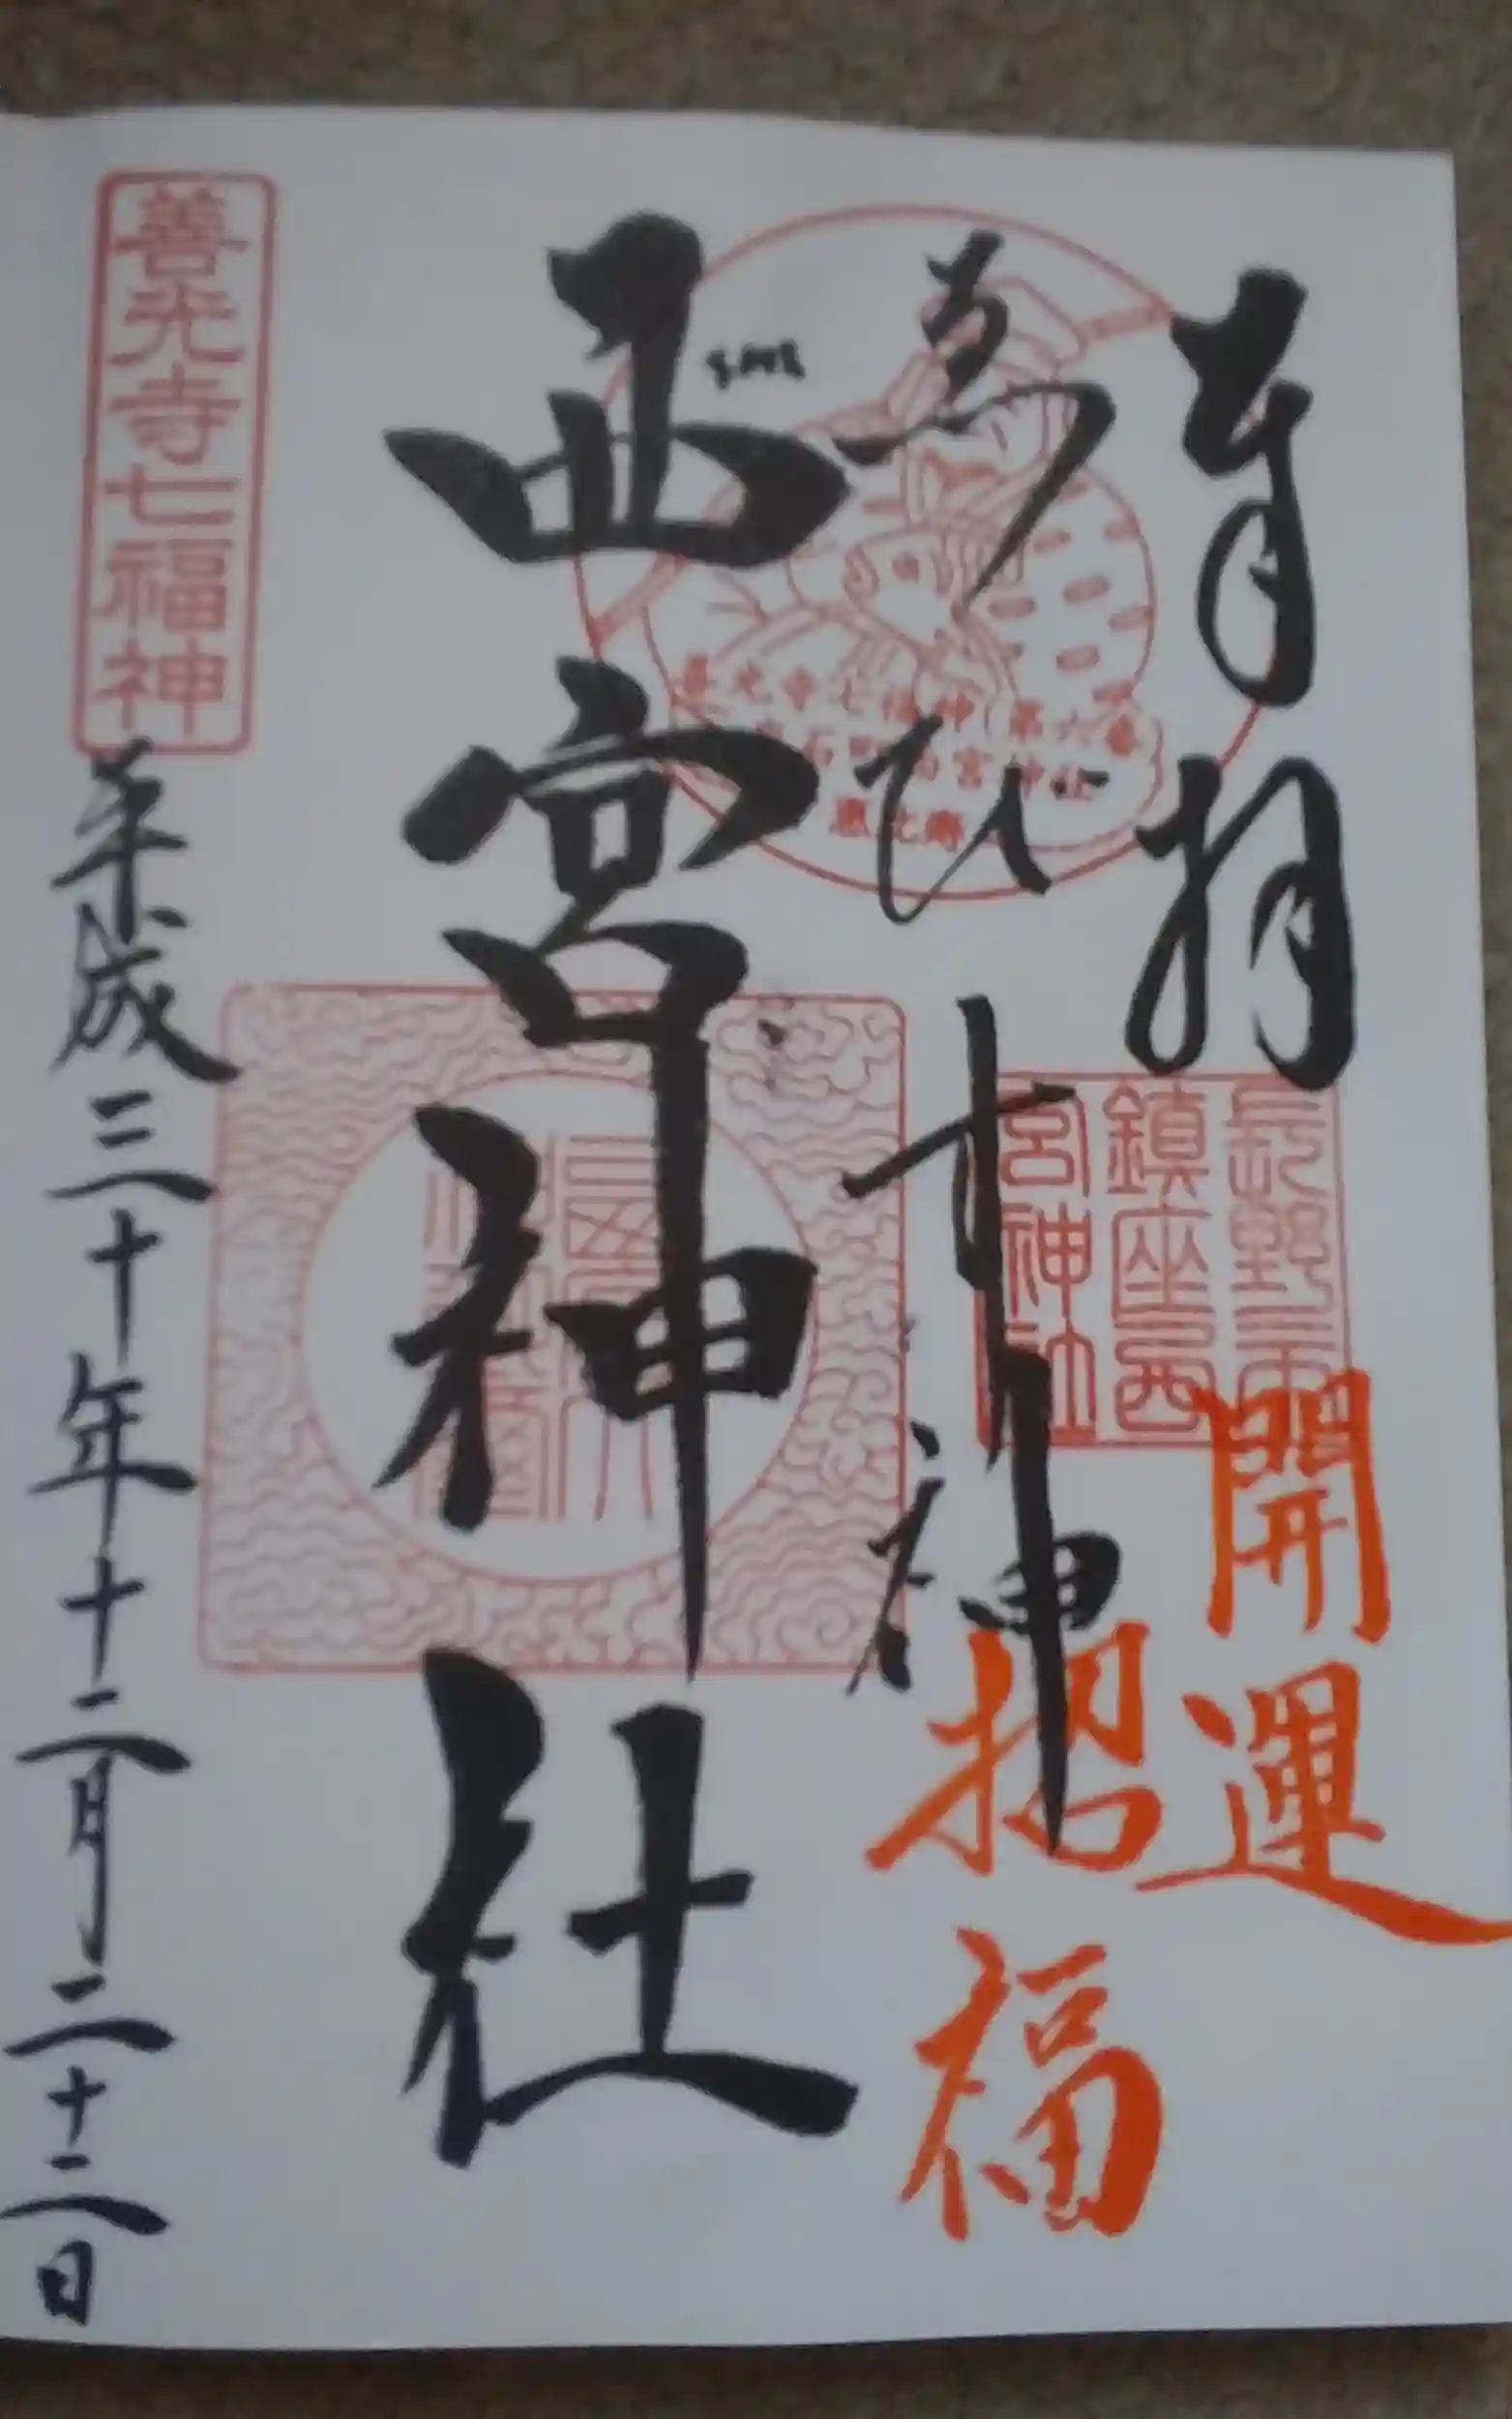 奉拝
開運
招福
ゑびす神
善光寺七福神 第六番
石町西宮神社
恵比寿
長野市
鎮座西
宮神社
西宮神社
善光寺七福神
平成三十年十二月二十二日